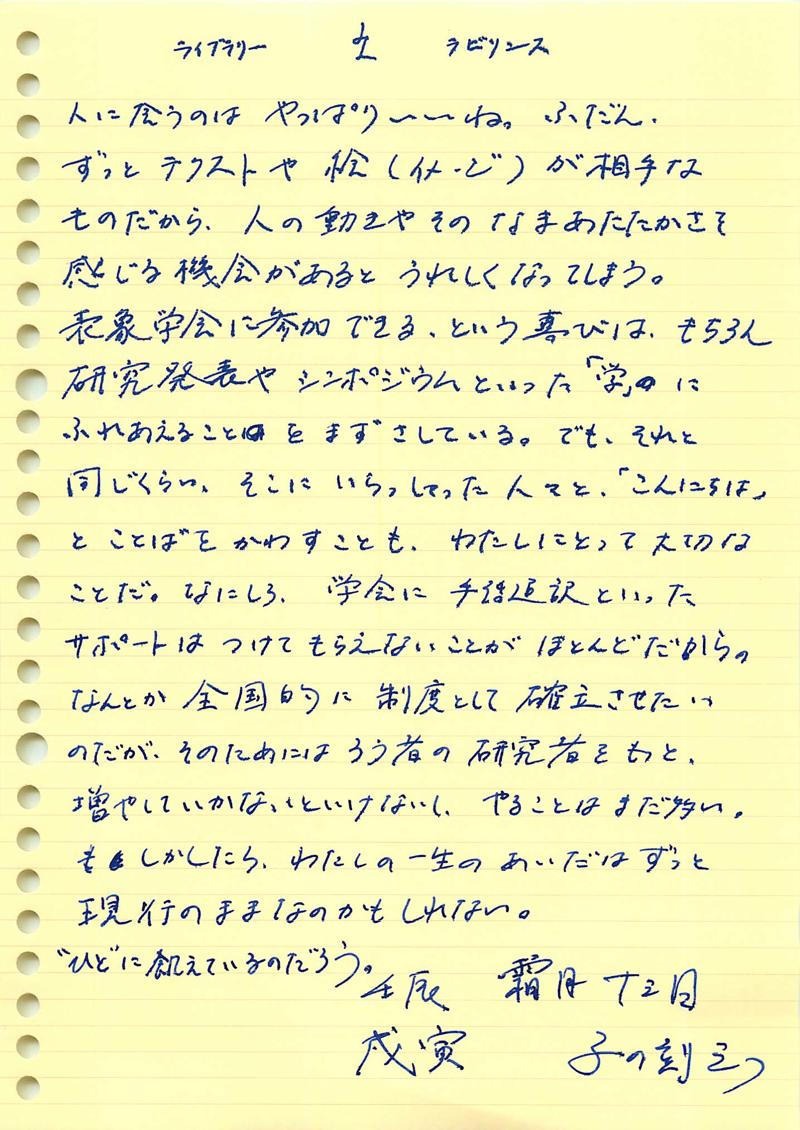 ライブラリー ラビリンス
人に会うのは やっぱり〜〜ね。ふだん、
ずっと テクストや 絵(イメージ)が相手な
ものだから、人の動きやその なまあたたかさを
感じる機会があると うれしくなってしまう。
表象学会に参加できる、という喜びは、もちろん
研究発表や シンポジウムといった「学」に
ふれあえることをまずさしている。でも、それと
同じくらい、そこに いらっしった人々と、「こんにちは」
と ことばを かわすことも、わたしにとって大切な
ことだ。なにしろ、学会に 手話通訳といった
サポートは つけてもらえないことが ほとんどだから。
なんとか 全国的に 制度として 確立させたい
のだが、そのためには ろう者の 研究者をもっと、
増やしていかないといけないし、やることはまだ多い。
もしかしたら、わたしの一生の あいだはずっと
現行のままなのかもしれない。
"ひと"に飢えているのだろう。
壬辰 霜月 十三日
戊寅 子の刻三つ